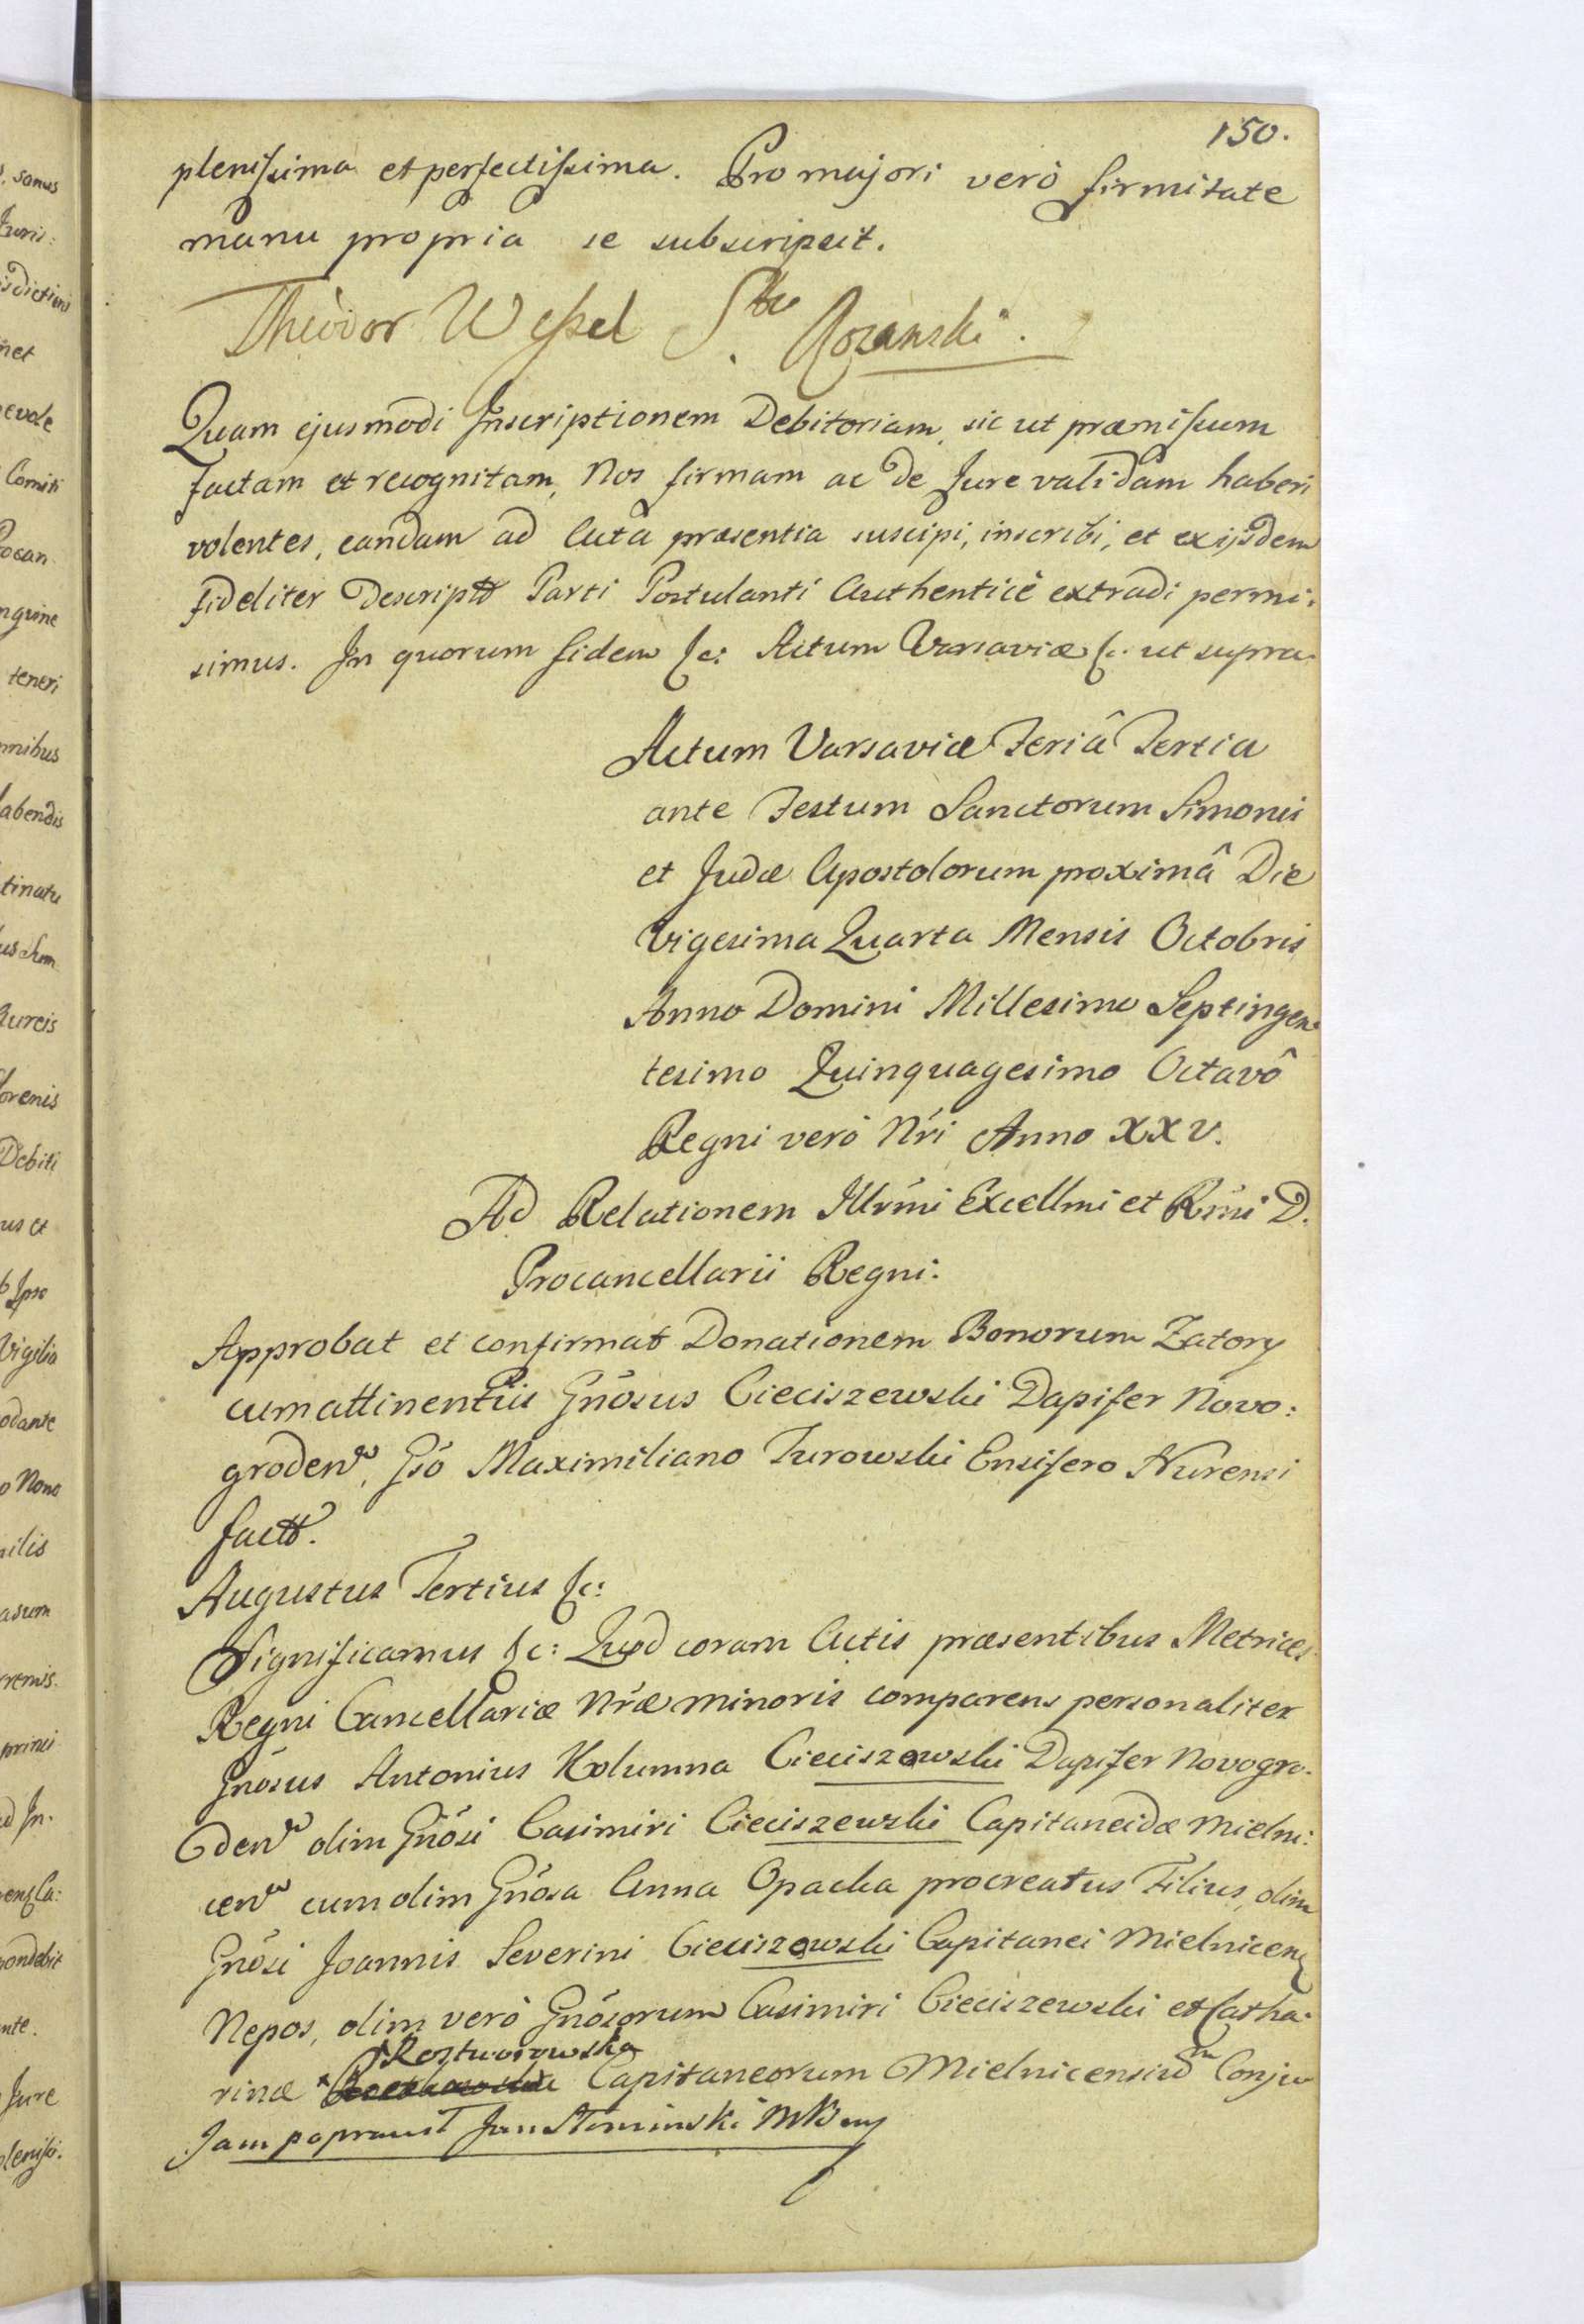 150.
plenissima et perfectissima. Pro majori verò firmitate
manu propria se subscripsit.
Theodor Wessel S. Rozanski.
Quam ejusmodi Inscriptionem Debitoriam, sic ut præmissum
factam et recognitam, Nos firmam ac de Jure validam haberi
volentes, eandam ad Acta præsentia suscipi, inscribi, et ex ijsdem
fideliter descriptt Parti Postulanti Authenticè extradi permi:
simus. In quorum fidem &c: Actum Varsaviæ &c. ut supra.
Actum Varsaviæ Feriâ Tertia
ante Festum Sanctorum Simonis
et Judæ Apostolorum proximâ Die
Vigesima Quarta Mensis Octobris
Anno Domini Millesimo Septingen:
tesimo Quinquagesimo Octavô
Regni verò Nri Anno XXV.
Ad Relationem Illrmi Excellmi et Rmi D.
Procancellarii Regni:
Approbat et confirmat Donationem Bonorum Zatory
cum attinentiis Gnosus Cieciszewski Dapifer Novo:
groden, Gso Maximiliano Turowski Ensifero Nurensi
factt.
Augustus Tertius &c:
Significamus &c: Quod coram Actis præsentibus Metrices
Regni Cancellariæ Nræ minoris comparens personaliter
Gnosus Antonius Kolumna Cieciszewski Dapifer Novogro:
den olim Gnosi Casimiri Cieciszewski Capitaneidæ Mielni:
cen cum olim Gnosa Anna Opacka procreatus Filius, olim
Gnosi Joannis Severini Cieciszewski Capitanei Mielnicen
Nepos, olim verò Gnosorum Casimiri Cieciszewski et Catha:
Roztworowska
rinæ Capitaneorum Mielnicensium Conju
Jam poprawił Jan Słominski MK